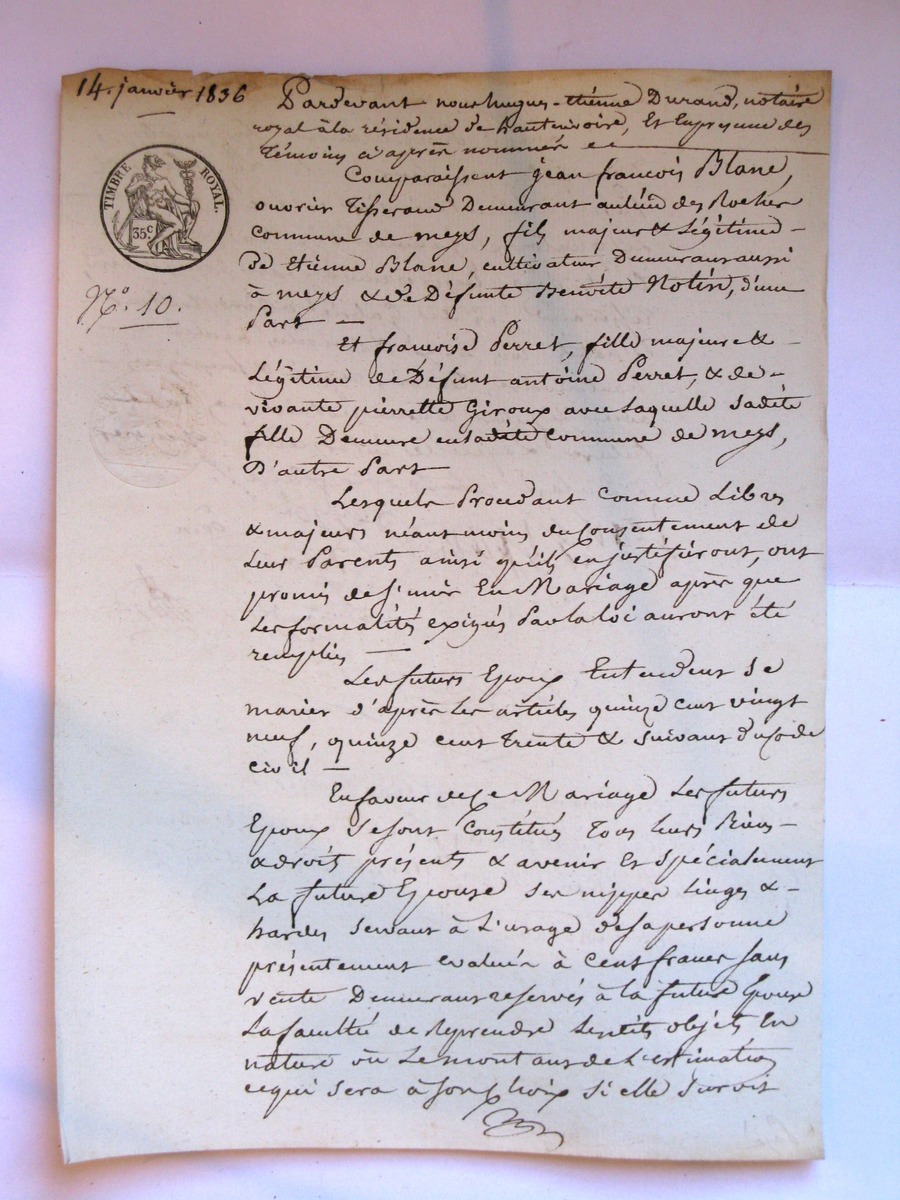 14. janvier 1836
TIMBRE ROYAL.
35 c
N.° 10.
Pardevant nous hugues-étienne Durand, notaire
royal à la résidence de hauterivoire, Et En presence des
Témoins ci après nommés
Comparaissent jean francois Blanc,
ouvrier Tisserand Demeurant au lieu des Rocher
commune de meys, fils majeur & Légitime -
De étienne Blanc, cultivateur Demeurant aussi
à meys & de Défunte Benoite Notire, d'une
Part —
Et francoise Perret, fille majeure & -
Légitime de Défunt antoine Perret, & de -
vivante pierrette Giroux avec Laquelle sadite
fille Demeure en sadite commune de meys,
D'autre Part —
Lesquels Procedant comme Libres
& majeurs néantmoins du consentement de
Leur Parents ainsi qu'ils en justifiront, ont
promis de s'unir En Mariage après que
Les formalités exigées Par la loi auront été
remplies —
Les futurs Epoux Entendent se
marier d'après Les articles quinze cent vingt
neuf, quinze cent Trente & suivant du code
civil —
En faveur de ce Mariage Les futurs
Epoux se sont Constitués Tous Leurs Biens -
& droits présents & avenir Et spécialement
La future Epouse ses nippes Linges & -
hardes servant à L'usage de sa personne
présentement evalués à Cent francs sans
vente Demeurant reservés à la future Epouse
La faculté de Reprendre Lesdits objets En
nature où Le montant de L'estimation
ce qui sera à son Choix si elle survit